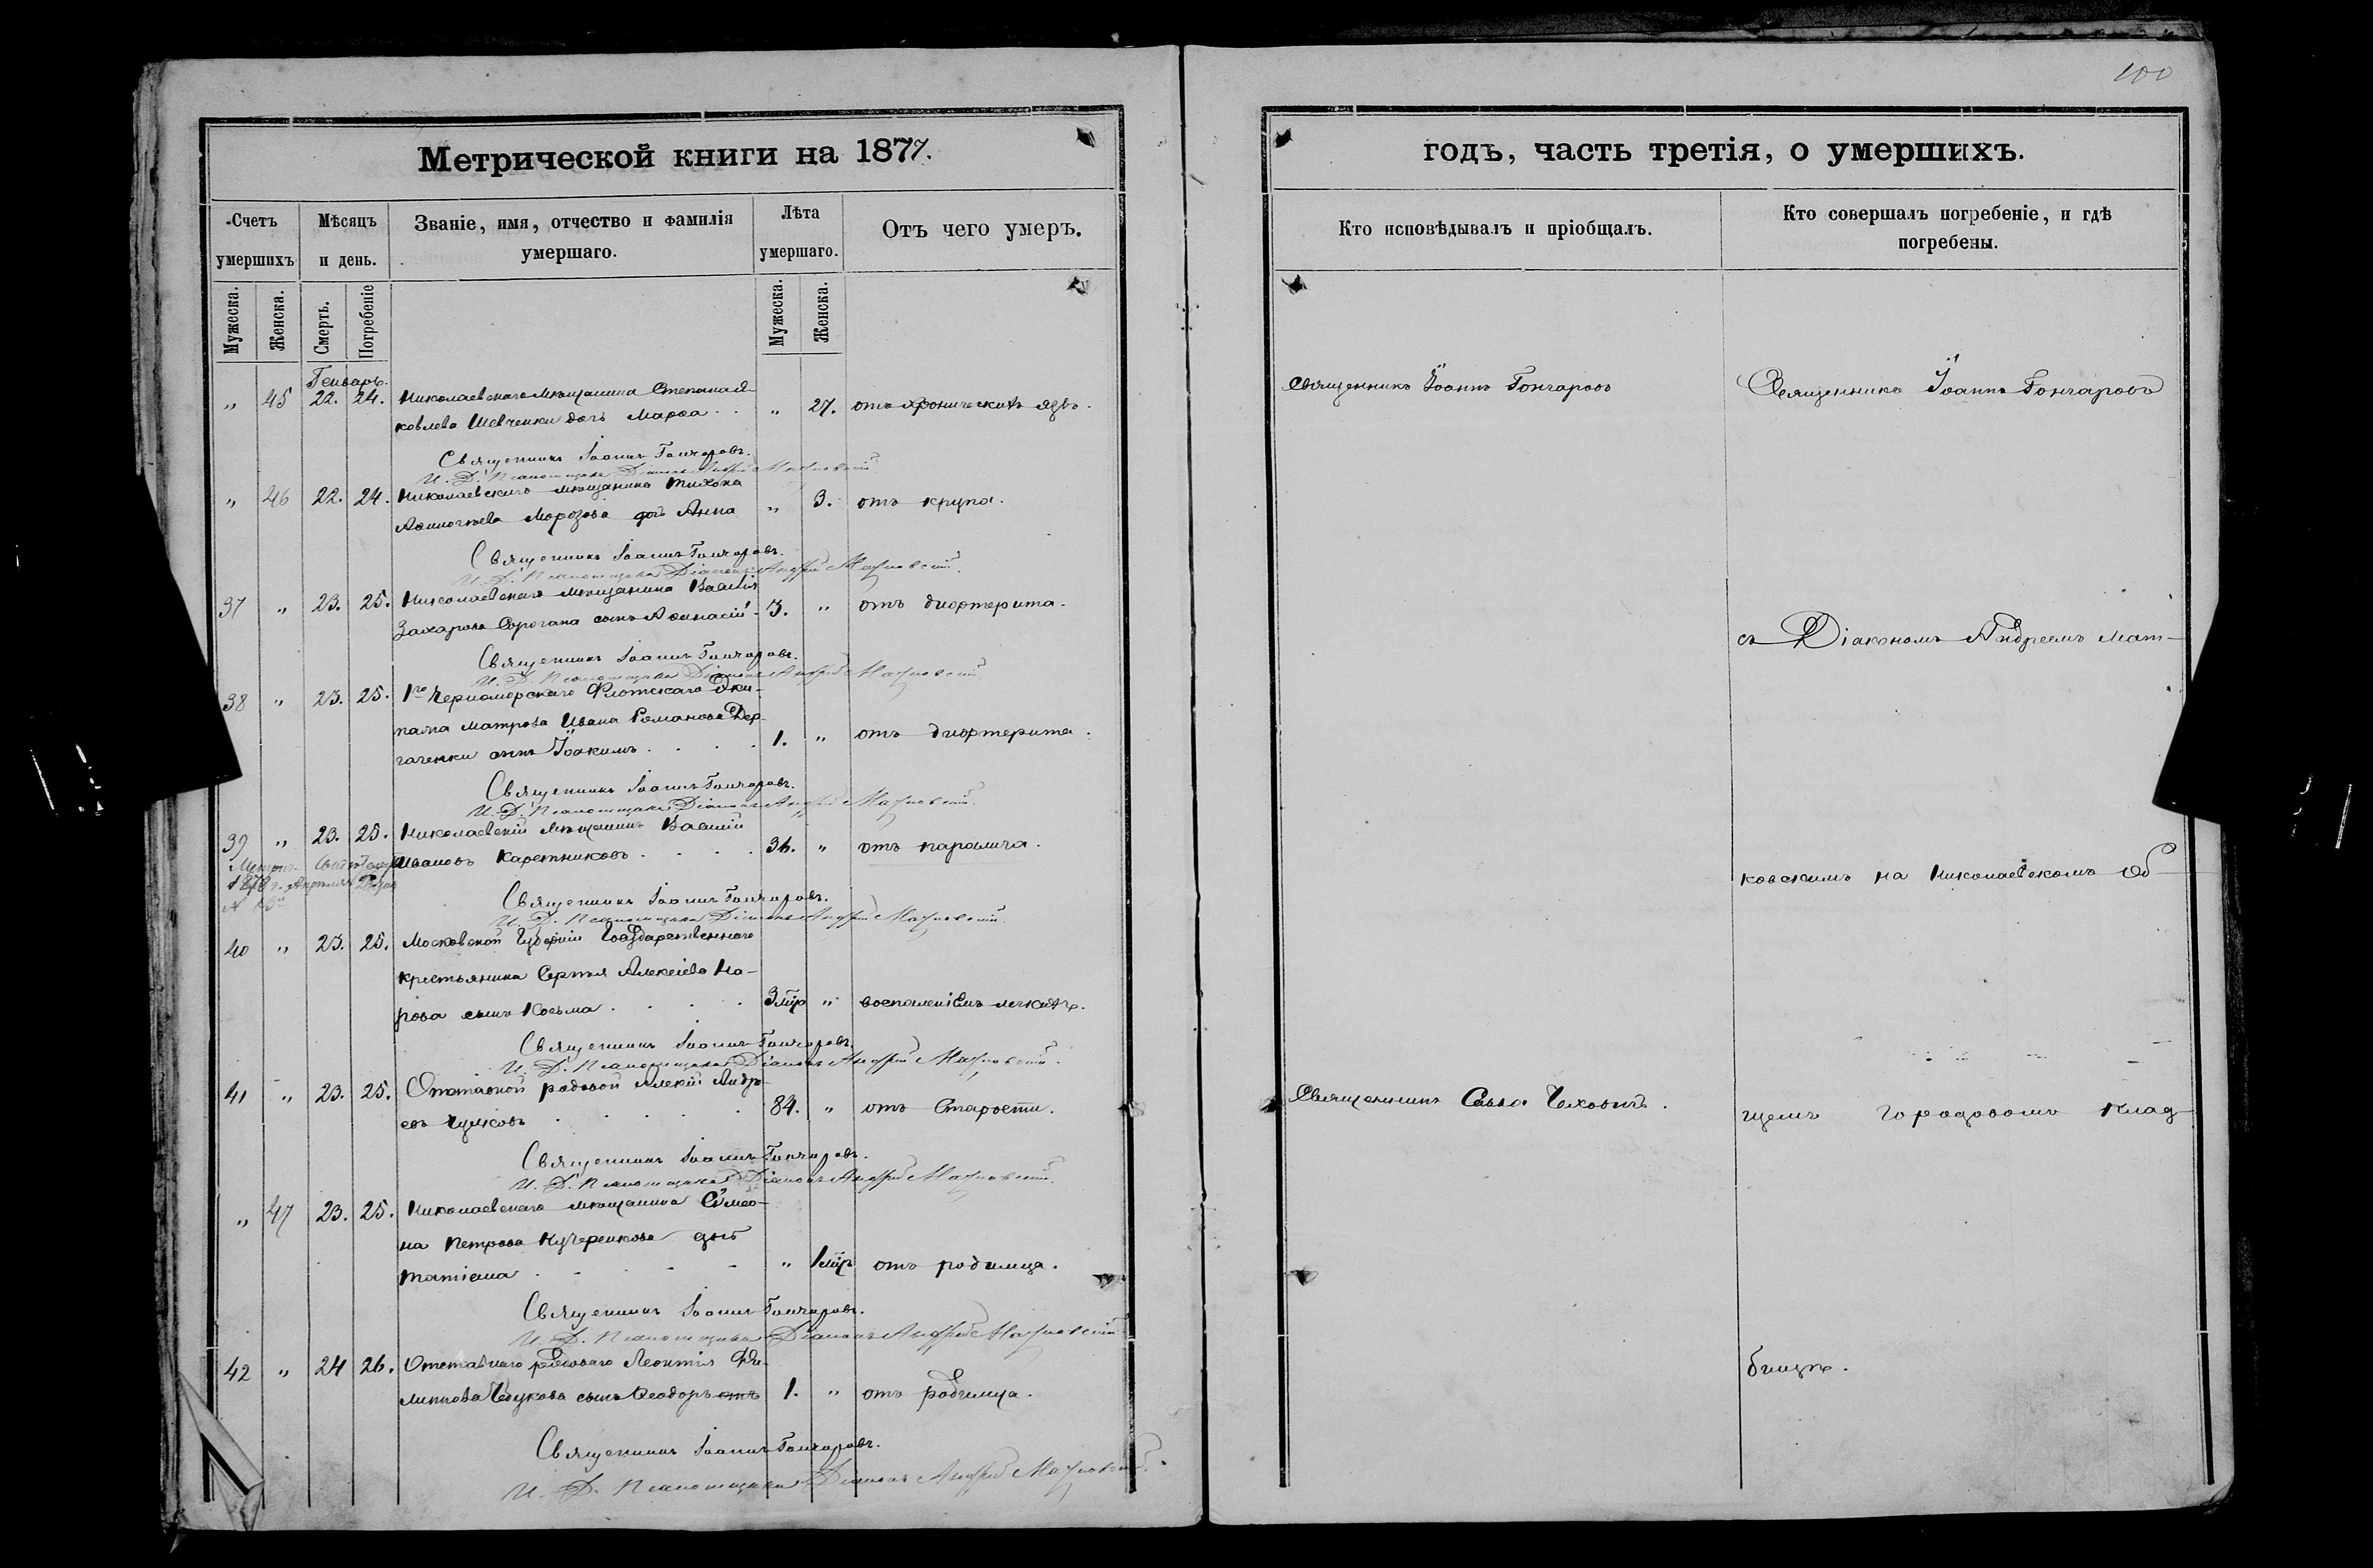 100
Метрической книги на 1877.
годъ, часть третія, о умершихъ.
Счетъ умершихъ
Мѣсяцъ и день.
Званіе, имя, отчество и фамилія умершаго.
Лѣта умершаго.
Отъ чего умеръ.
Кто исповѣдывалъ и пріобщалъ.
Кто совершалъ погребеніе, и гдѣ погребены.
Мужеска.
Женска.
Смерть.
Погребеніе
Мужеска.
Женска.
Генварь.
„ 45 22. 24. Николаевскаго мѣщанина Степана Я-
ковлева Шевченки дочь Марѳа . . „ 27. отъ хроническихъ язвъ.
Священникъ Іоаннъ Гончаровъ
Священникъ Іоаннъ Гончаровъ
Священникъ Іоаннъ Гончаровъ.
И. Д. Псаломщика Діаконъ Андрей
„ 46 22. 24. Николаевскаго мѣщанина Тихона
Морозова дочь Анна „ 3. отъ крупа.
Священникъ Іоаннъ Гончаровъ.
И. Д. Псаломщика Діаконъ Андрей
37 „ 23. 25. Николаевскаго мѣщанина Василія
Захарова сынъ Аѳанасій. 3. „ отъ дифтерита.
съ Діакономъ Андреемъ Мат-
Священникъ Іоаннъ Гончаровъ.
И. Д. Псаломщика Діаконъ Андрей
38 „ 23. 25. 1го Черноморскаго Флотскаго Эки-
пажа матроза Ивана Романова Дер-
гаченки сынъ Іоакимъ . . . . 1. „ отъ дифтерита.
Священникъ Іоаннъ Гончаровъ.
И. Д. Псаломщика Діаконъ Андрей
39 „ 23. 25. Николаевскій мѣщанинъ Василій
Ивановъ Каретниковъ . . . . 34. „ отъ паралича.
1878 г. Апрѣля
ковскимъ на Николаевскомъ об-
Священникъ Іоаннъ Гончаровъ.
И. Д. Псаломщика Діаконъ Андрей
40 „ 23. 25. Московской Губерніи Государственнаго
крестьянина Сергѣя Алексіева На-
рова сынъ Косьма . . . . 3 мѣр „ воспаленіемъ легкихъ.
Священникъ Іоаннъ Гончаровъ.
И. Д. Псаломщика Діаконъ Андрей
41 „ 23. 25. Отставной рядовой Алексій Андре-
евъ . . . . . 84. „ отъ Старости.
Священникъ Савва
щемъ городовомъ клад-
Священникъ Іоаннъ Гончаровъ.
И. Д. Псаломщика Діаконъ Андрей
„ 47 23. 25. Николаевскаго мѣщанина Симео-
на Петрова Кучеренкова дочь
Татіана . . . . „ 1 мѣр отъ родимца.
Священникъ Іоаннъ Гончаровъ.
И. Д. Псаломщика Діаконъ Андрей
42 „ 24 26. Отставнаго рядоваго Леонтія Фи-
липпова сынъ Ѳеодоръ отъ 1. „ отъ родимца.
бищѣ.
Священникъ Іоаннъ Гончаровъ.
И. Д. Псаломщика Діаконъ Андрей